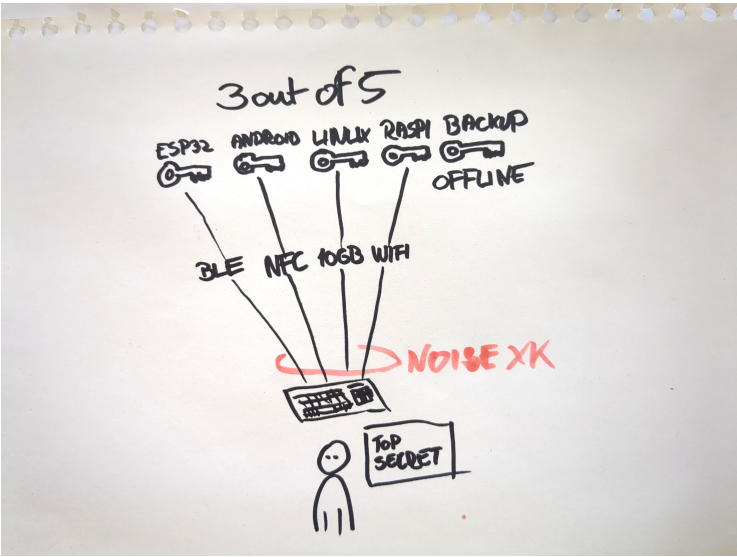 3 out of 5
ESP32 ANDROID LINUX RASPI BACKUP
OFFLINE
BLE NFC 10GB WIFI
NOISE XK
TOP
SECRET